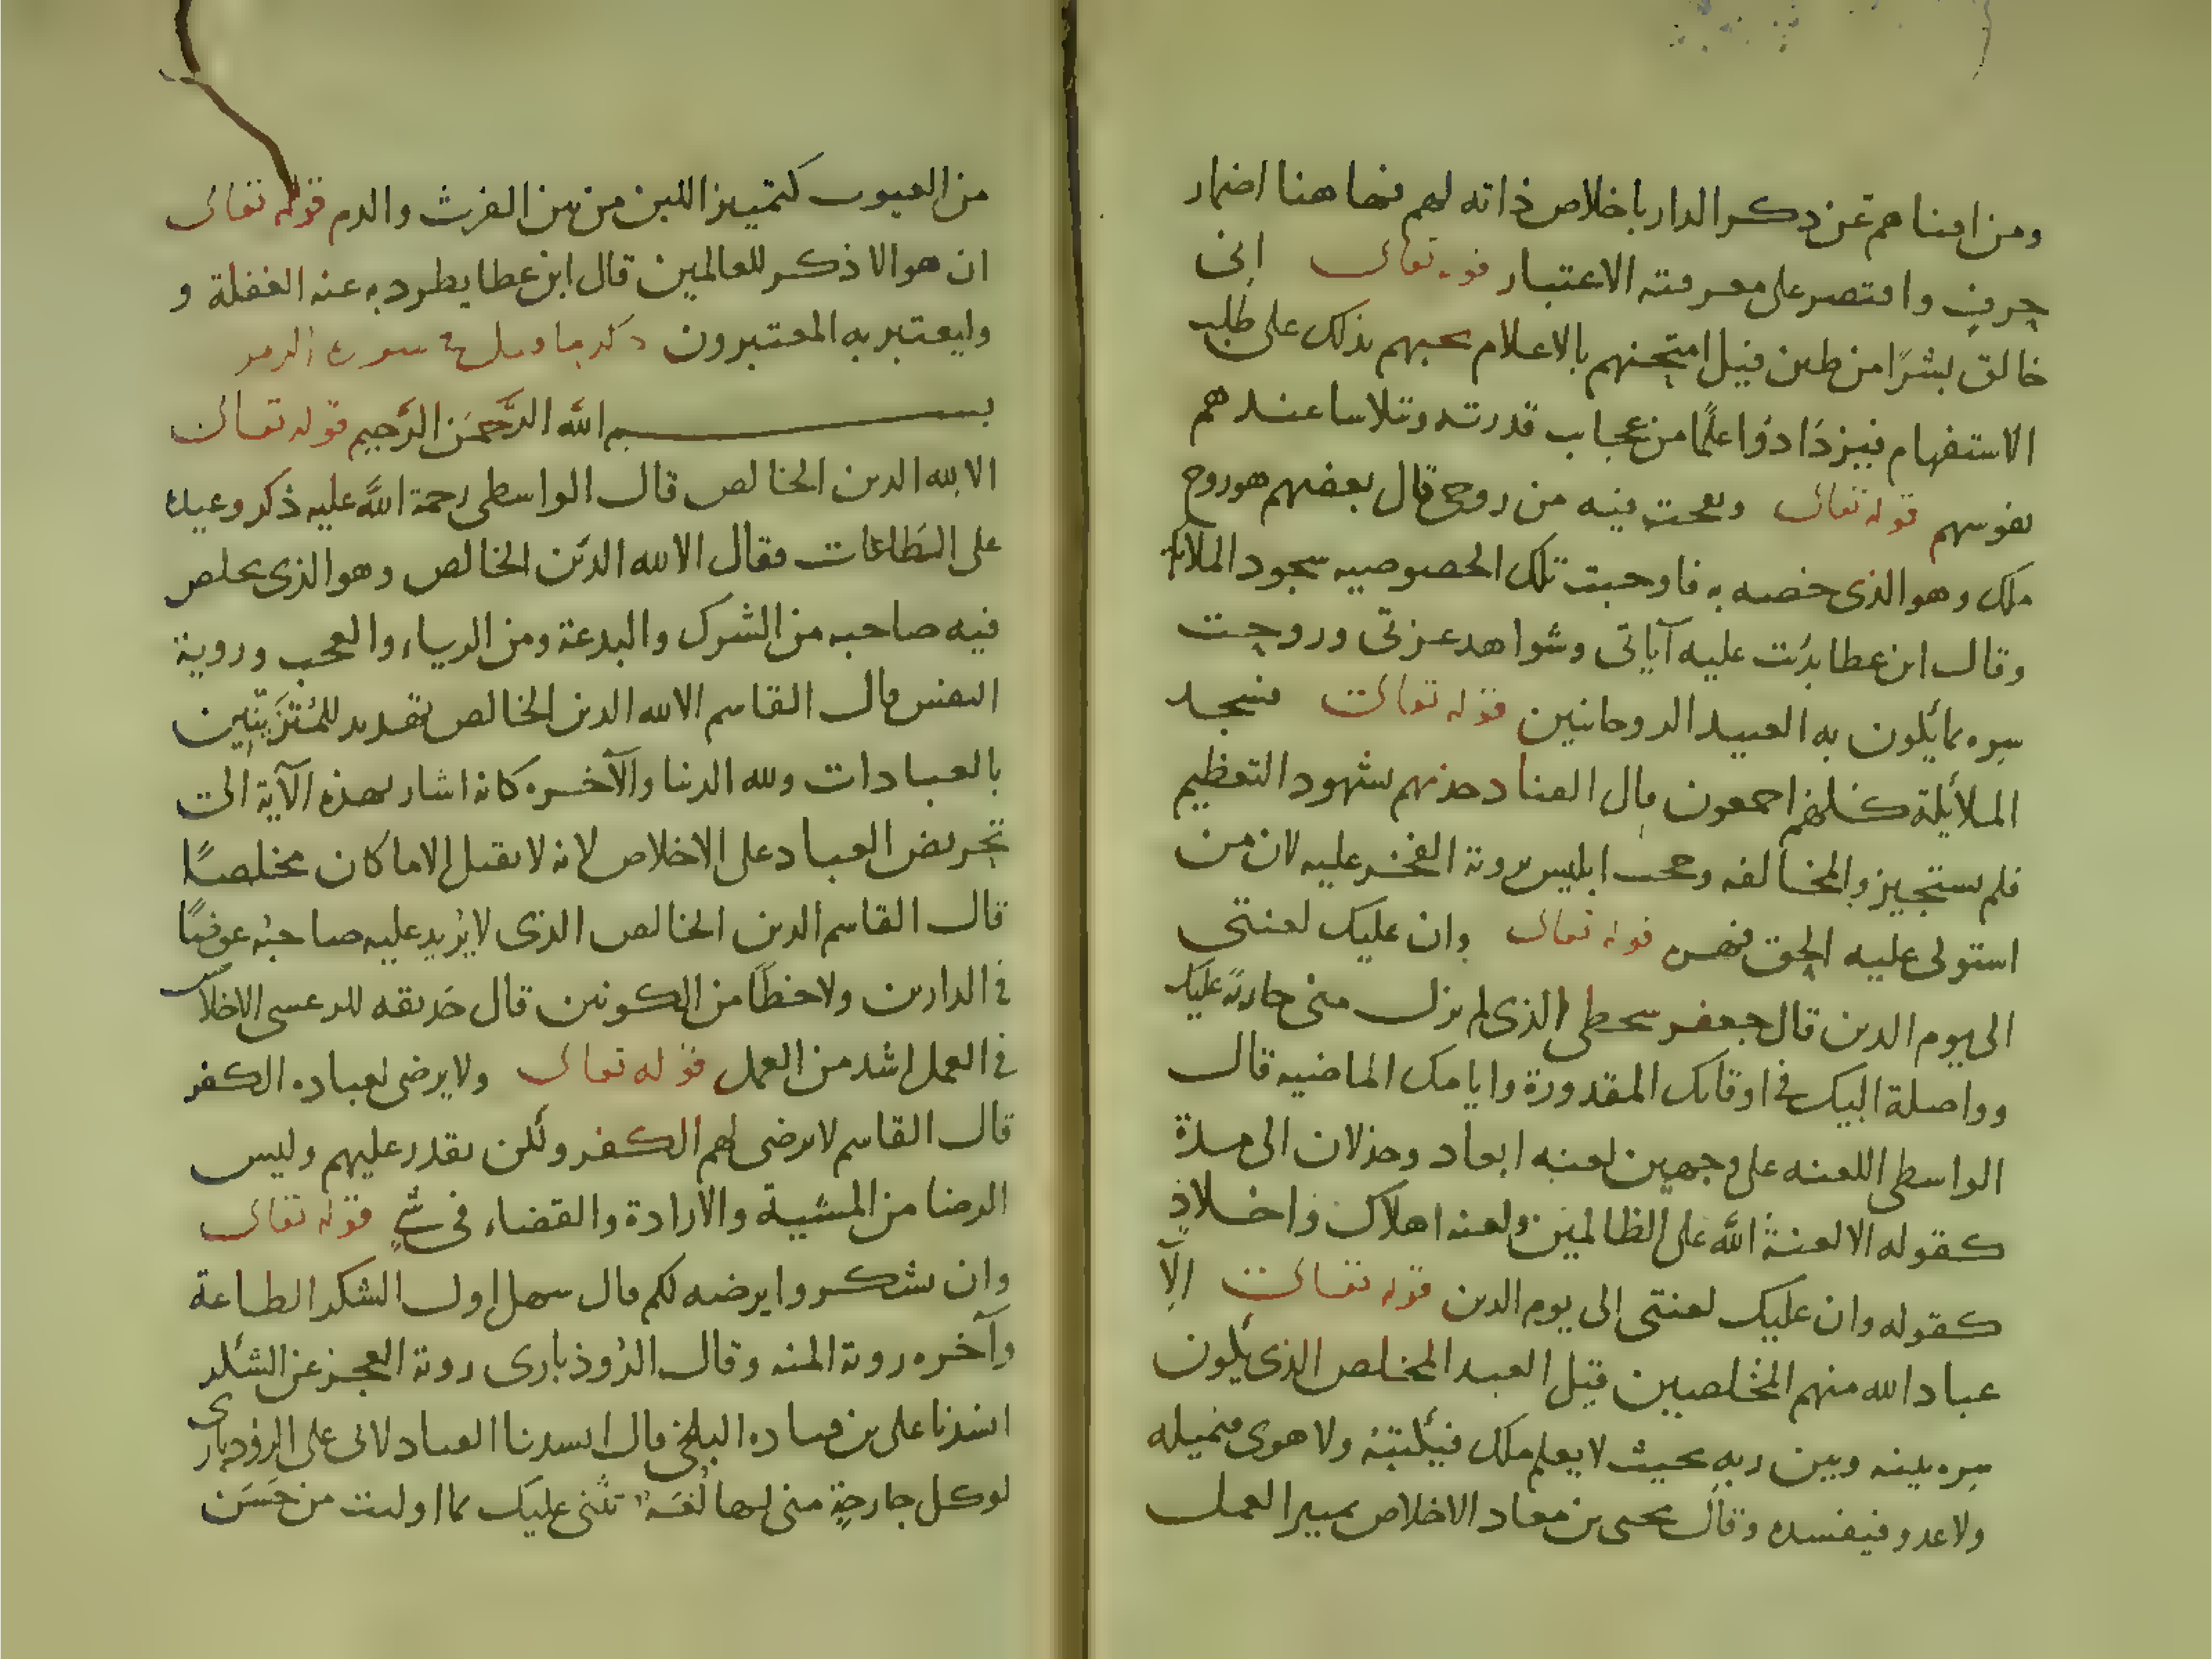 ومن افناهم عن ذكر الدار باخلاص ذاته لهم فيها هنا اضمار
حرف واقتصر على معرفته الاعتبار قوله تعالى انى
خالق بشرًا من طين قيل امتحنهم بالاعلام يحبهم بذلك على طلب
الاستفهام فيزدادوا علمًا من عجايب قدرته وتلاسا عندهم
نفوسهم قوله تعالى ونفخت فيه من روحى قال بعضهم هو روح
ملك وهو الذى خصه به فاوجبت تلك الخصوصيه سجود الملائكة
وقال ابن عطا بدت عليه آياتى وشواهد عزتى وروحت
سره مايكون به العبيد الروحانيين قوله تعالى فسجد
الملائكة كلهم اجمعون قال العناد حذبهم شهود التعظيم
فلم يستجيزوا المخالفه وحجب ابليس بروية الفخر عليه لان من
استولى عليه الحق قهره قوله تعالى وان عليك لعنتى
الى يوم الدين قال جعفر سخطى الذى لم يزل منى جارية عليك
وواصلة اليك فى اوقاتك المقدورة وايامك الماضيه قال
الواسطى اللعنه على وجهين لعنه ابعاد وخذلان الى مدة
كقوله الا لعنة الله على الظالمين ولعنه اهلاك واخلاد
كقوله وان عليك لعنتى الى يوم الدين قوله تعالى الا
عباد الله منهم المخلصين قيل العبد المخلص الذى يكون
سره بينه وبين ربه بحيث لا يعلم ملك فيكتبه ولا هوى فيميله
ولا عدو فيفسده وقال يحيى بن معاد الاخلاص تمييز العمل
من العيوب كتميز اللبن من بين الفرث والدم قوله تعالى
ان هو الا ذكر للعالمين قال ابن عطا يطرد به عنه الغفلة و
وليعتبر به المعتبرون ذكر ما قيل فى سورة الزمر
بسم الله الرحمن الرحيم قوله تعالى
الا لله الدين الخالص قال الواسطى رحمة الله عليه ذكر وعيده
على الطاعات فقال الا لله الدين الخالص وهو الذى يخلص
فيه صاحبه من الشرك والبدعة ومن الرياء والعجب وروية
النفس قال القاسم الا لله الدين الخالص تهديد للمتزينين
بالعبادات ولله الدنيا والآخره كانه اشار بهذه الآية الى
تحريض العباد على الاخلاص لانه لا يقبل الا ما كان مخلصًا
قال القاسم الدين الخالص الذى لا يريد عليه صاحبه عوضًا
فى الدارين ولا حظًا من الكونين قال حذيفه المرعشى الاخلاص
فى العمل اشد من العمل قوله تعالى ولا يرضى لعباده الكفر
قال القاسم لا يرضى لهم الكفر ولكن يقدر عليهم وليس
الرضا من المشية والارادة والقضاء فى شئ قوله تعالى
وان تشكروا يرضه لكم قال سهل اول الشكر الطاعة
وآخره روية المنه وقال الروذبارى روية العجز عن الشكر
انشدنا على بن قتاده البلخى قال انشدنا العباد لابى على الروذبارى
لو كل جارحة منى لها لغة تثنى عليك بما اوليت من حسن